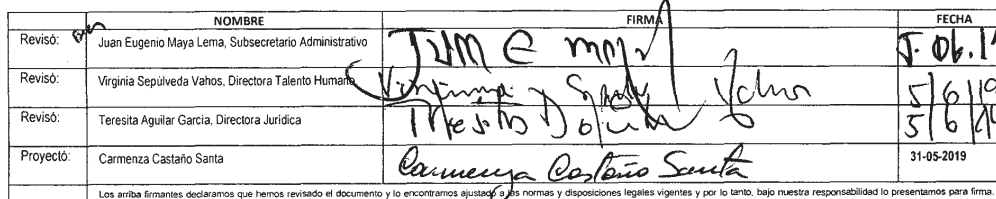 NOMBRE FIRMA FECHA
Revisó: Juan Eugenio Maya Lema, Subsecretario Administrativo
Revisó: Virginia Sepúlveda Vahos, Directora Talento Humano 5/6/19
Revisó: Teresita Aguilar García, Directora Jurídica 5/6/19
Proyectó: Carmenza Castaño Santa Carmenza Castaño Santa 31-05-2019
Los arriba firmantes declaramos que hemos revisado el documento y lo encontramos ajustado a las normas y disposiciones legales vigentes y por lo tanto, bajo nuestra responsabilidad lo presentamos para firma.